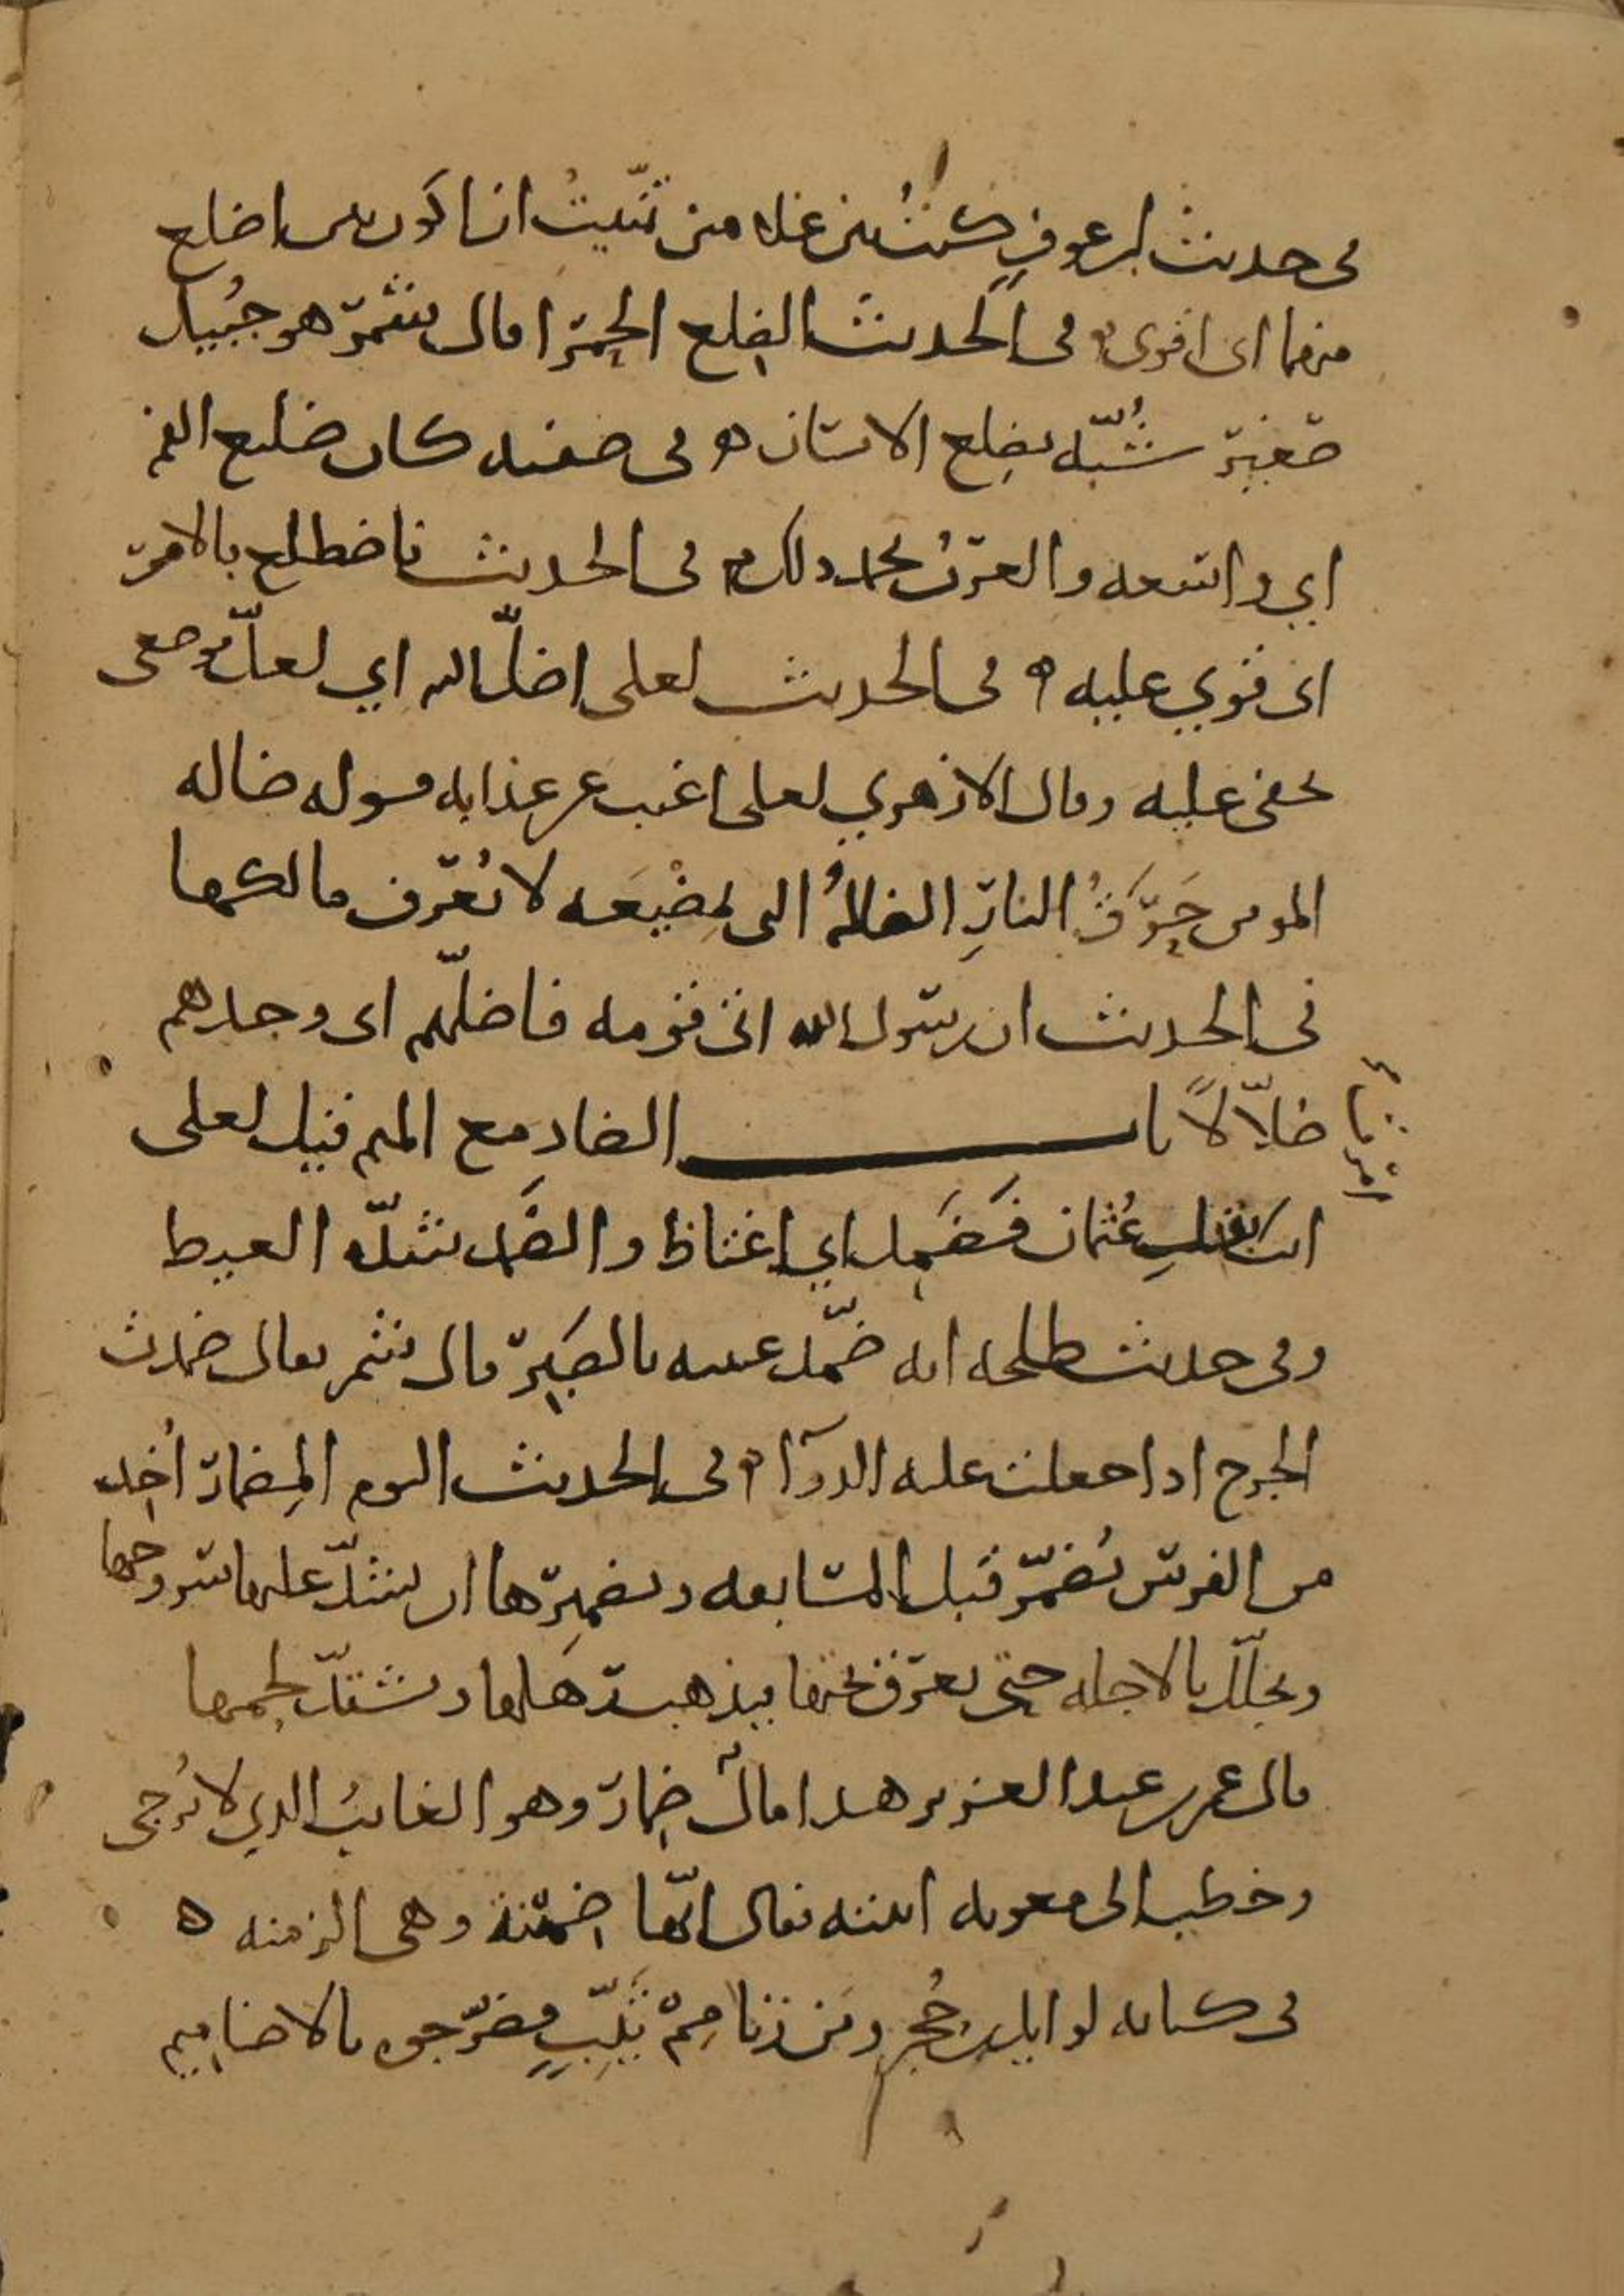 في حديث ابن عوف كنت بين غلامين تمنيت ان اكون بين اضلع
منهما اي اقوى ه في الحديث الضلع الحمرا قال شمر هو جبيل
صغير شبّه بضلع الانسان ه في صفته كان ضليع الفم
اي واسعه والعرب تحمد ذلك ه في الحديث فاضطلع بالامر
اي قوي عليه ه في الحديث لعلي اضل الله اي لعل موضعي
يخفى عليه وقال الازهري لعلي اغيب عن عذابه قوله ضالة
المومن حرق النار الضالة التي بمضيعه لا يعرف مالكها
في الحديث ان رسول الله اتى قومه فاضلّهم اي وجدهم
ضلّالًا باب الضاد مع الميم قيل لعلي
انت عثمان فضمد اي اغتاظ والضمد شدّة الغيظ
وفي حديث طلحه انه ضمّد عينه بالصبر قال شمر يقال ضمدت
الجرح اذا جعلت عليه الدوآ ه في الحديث اليوم المضمار اخذ
من الفرس يضمّر قبل المسابقه وتضميرها ان يشدّ عليها سروجها
ويجلّل بالاجله حتى يعرق تحتها فيذهب رهلها ويشتدّ لحمها
قال عمر بن عبد العزيز هذا مال ضمار وهو الغايب الذي لا يرجى
وخطب الى معويه ابنته فقال انّها ضمنة وهي الزمنه ه
في كتابه لوايل بن حجر ومن زنا مم ثيّب فضرّجوه بالاضاميم